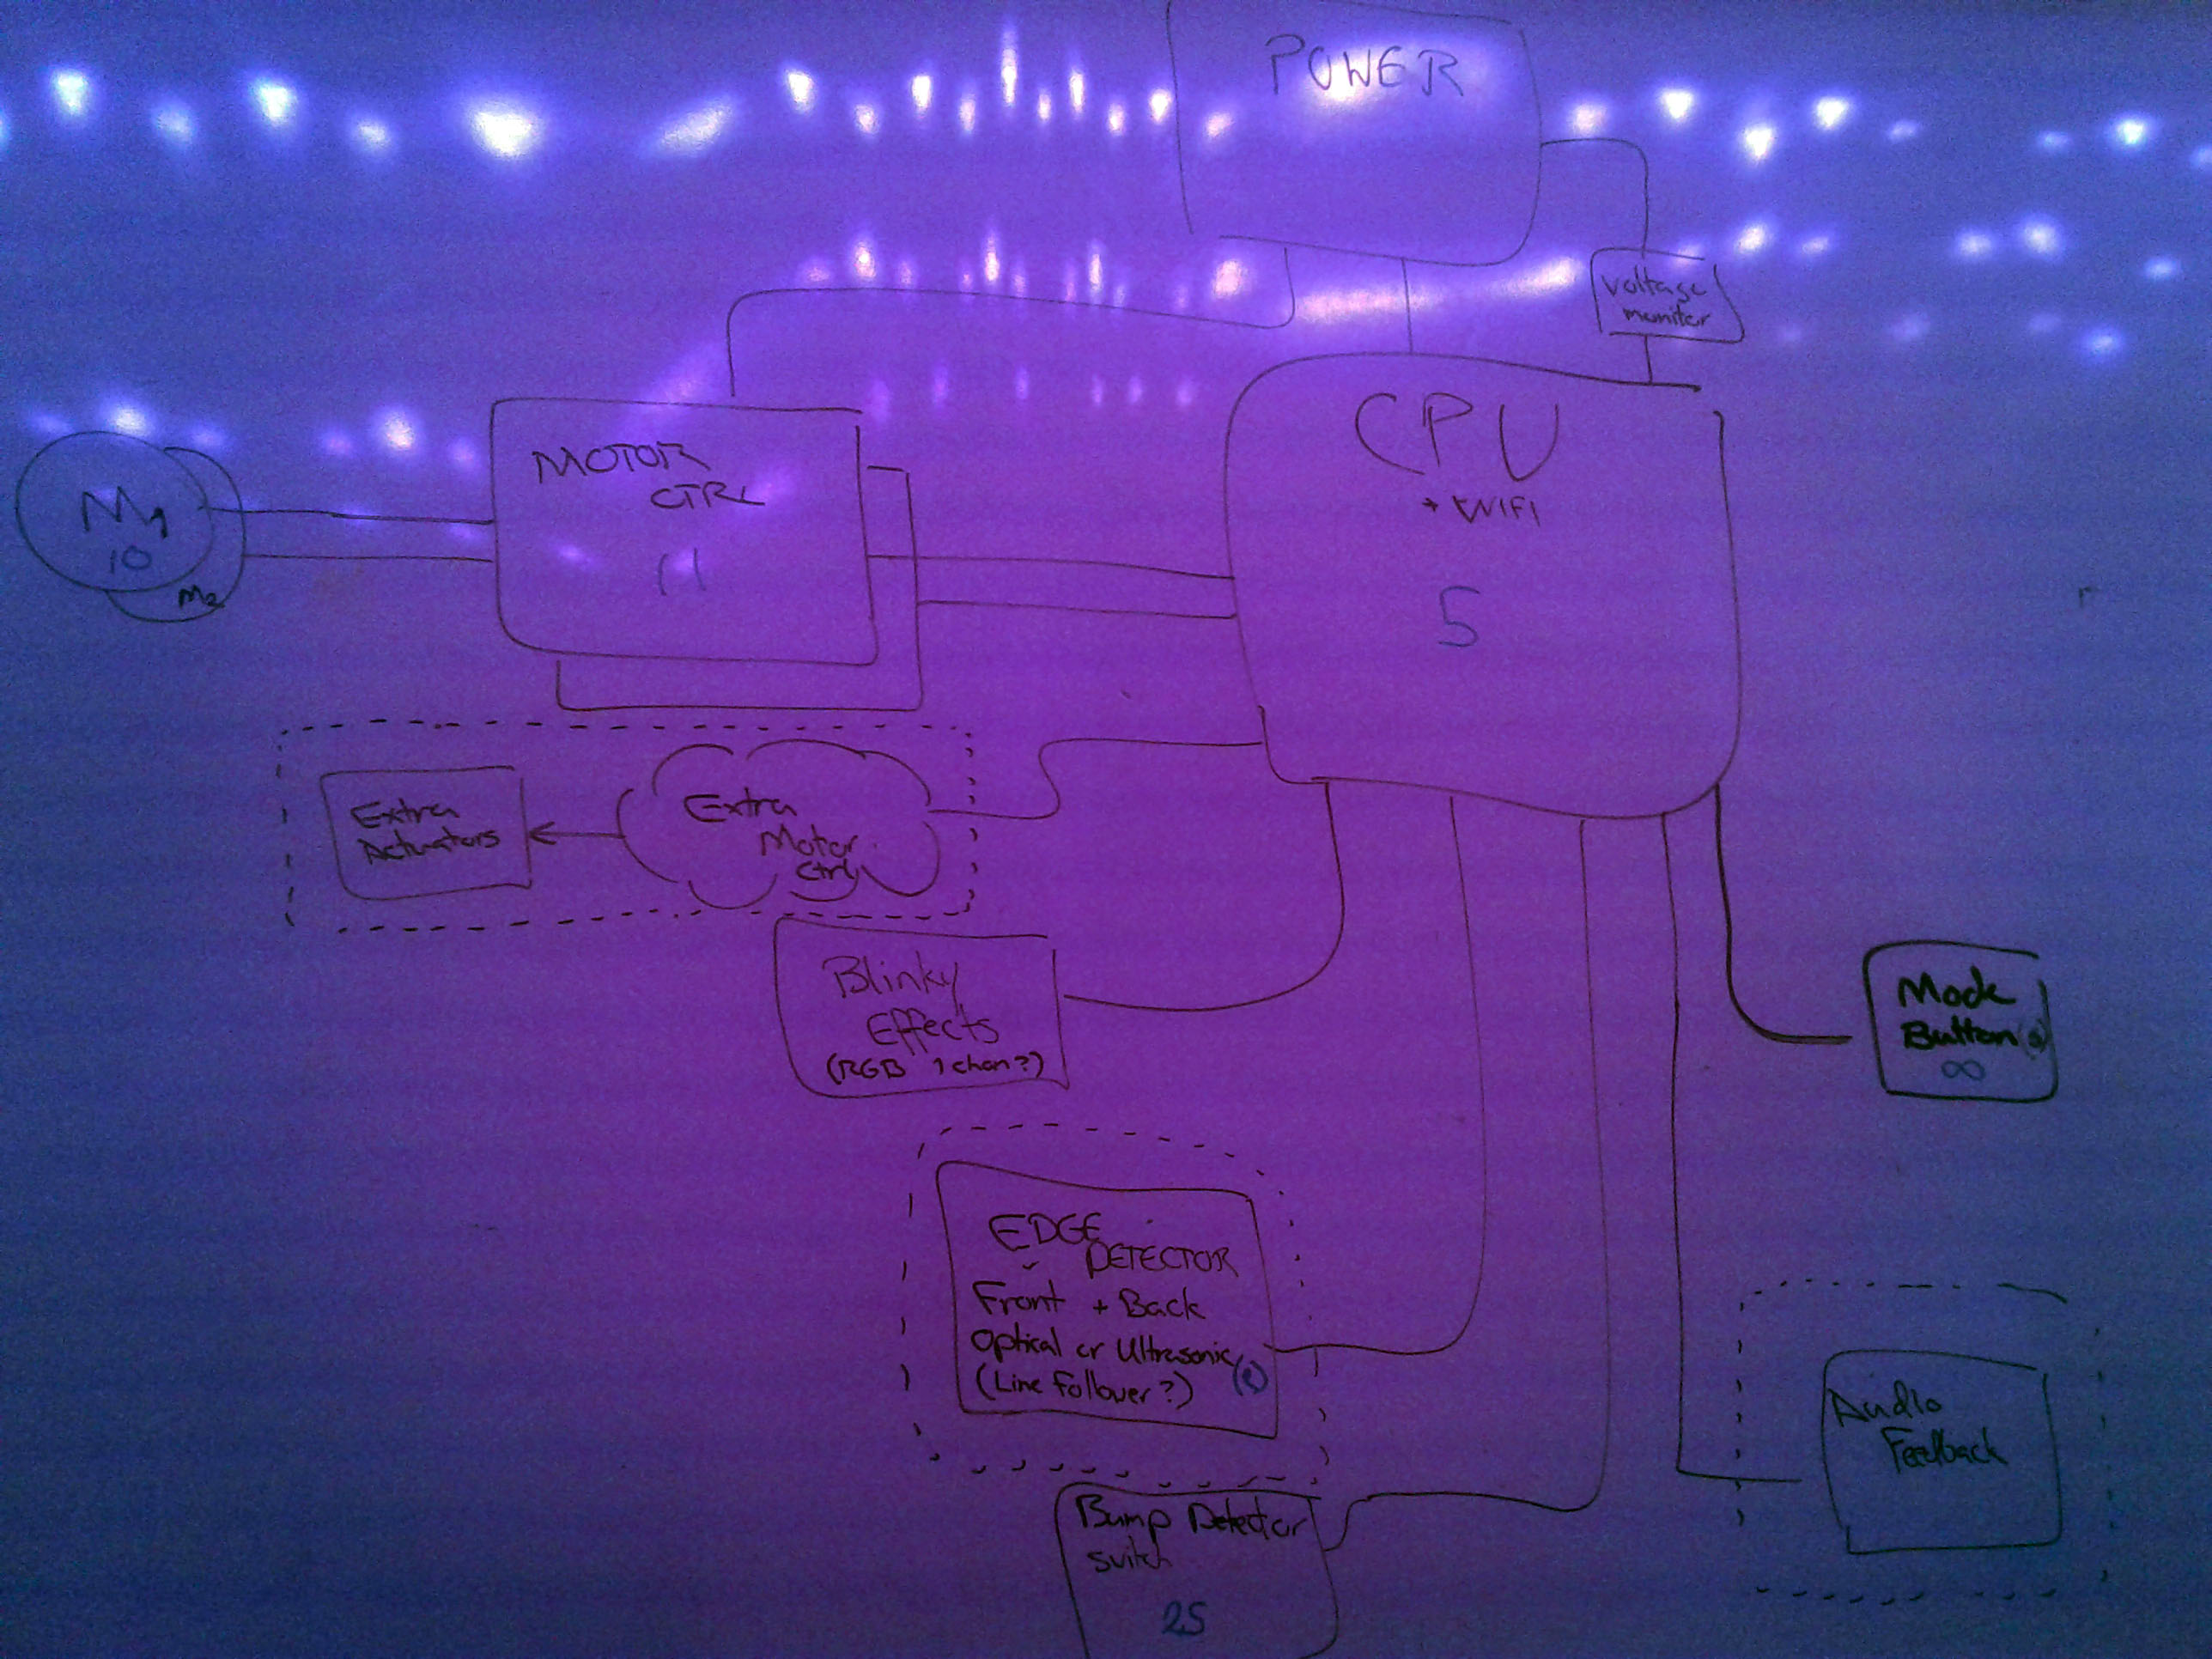 POWER
voltage
monitor
CPU
+ WIFI
5
MOTOR
CTRL
11
M1
10
M2
Extra
Actuators
Extra
Motor
Ctrl
Blinky
Effects
(RGB 1 chan?)
Mode
Button(s)
∞
EDGE
DETECTOR
Front + Back
Optical or Ultrasonic
(Line Follower?)
Audio
Feedback
Bump Detector
switch
25